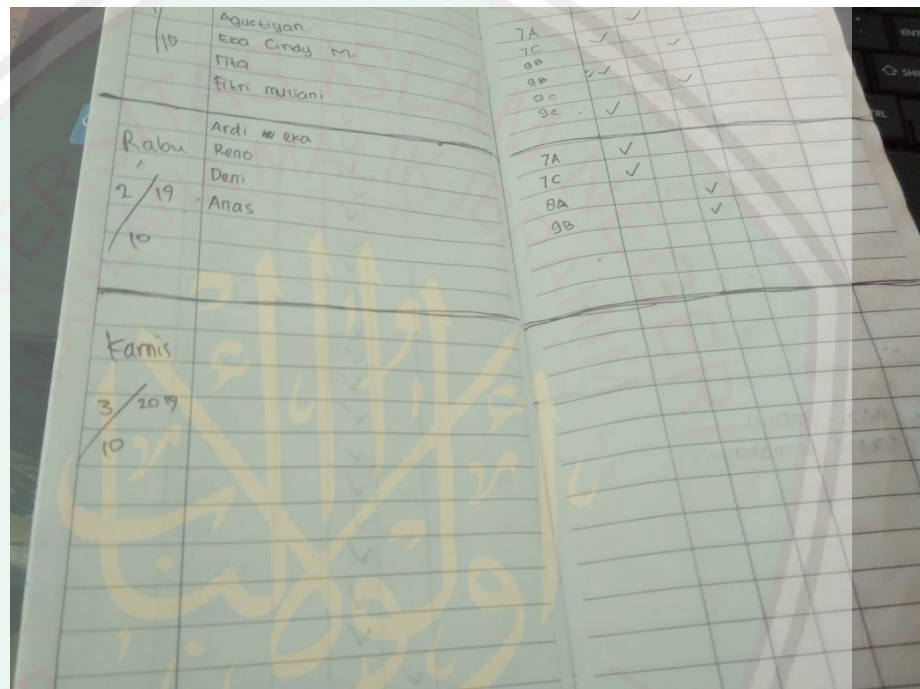 10
Agustiyan 7A
Eka Cindy M. 7C
Mita 9B
Fitri muliani 9B
9C
9C
Rabu
2/19
10
Ardi eka 7A
Reno 7C
Deni 8A
Anas 9B
Kamis
3/2019
10